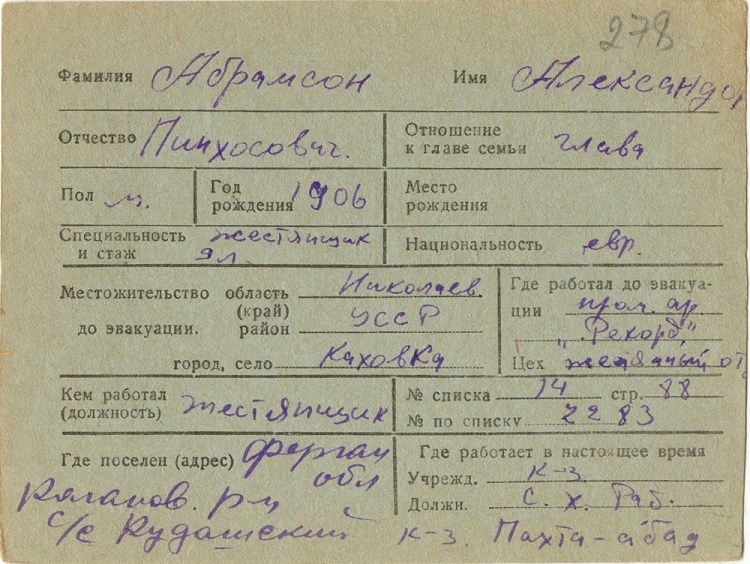 278
Фамилия Абрамсон Имя Александр
Отчество Пинхосович. Отношение к главе семьи глава
Пол м. Год рождения 1906 Место рождения
Специальность и стаж жестянщик 9 л. Национальность евр.
Местожительство область (край) Николаев
до эвакуации. район УССР
город, село Каховка
Где работал до эвакуа-
ции пром. ар.
„Рекорд"
Цех жестяный от
Кем работал (должность) жестянщик
№ списка 14 стр. 88
№ по списку 2283
Где поселен (адрес) Ферган
обл
р-н
с/с Кудашский к-з. Пахта-абад
Где работает в настоящее время
Учрежд. к-з
Должн. с. х. Раб.